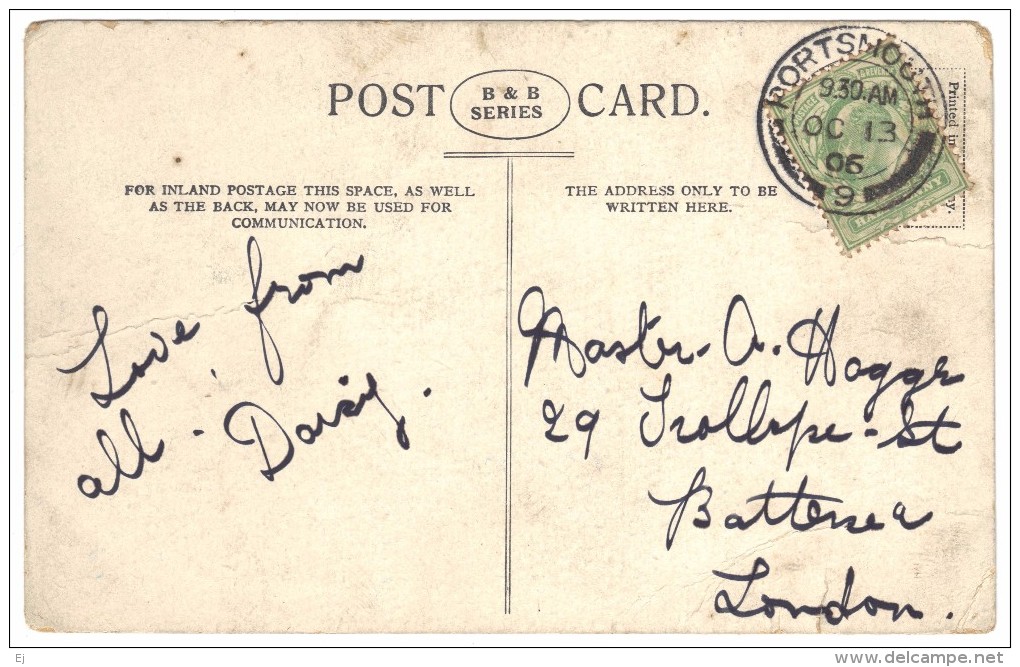 POST CARD.
B & B
SERIES
FOR INLAND POSTAGE THIS SPACE, AS WELL
AS THE BACK, MAY NOW BE USED FOR
COMMUNICATION.
THE ADDRESS ONLY TO BE
WRITTEN HERE.
PORTSMOUTH
9.30.AM
OC 13
06
9
POSTAGE & REVENUE
HALFPENNY
Printed in
y.
Love from
all - Daisy.
Master. A. Hogge
29 Trollope-St
Battersea
London.
Ej
delcampe.net